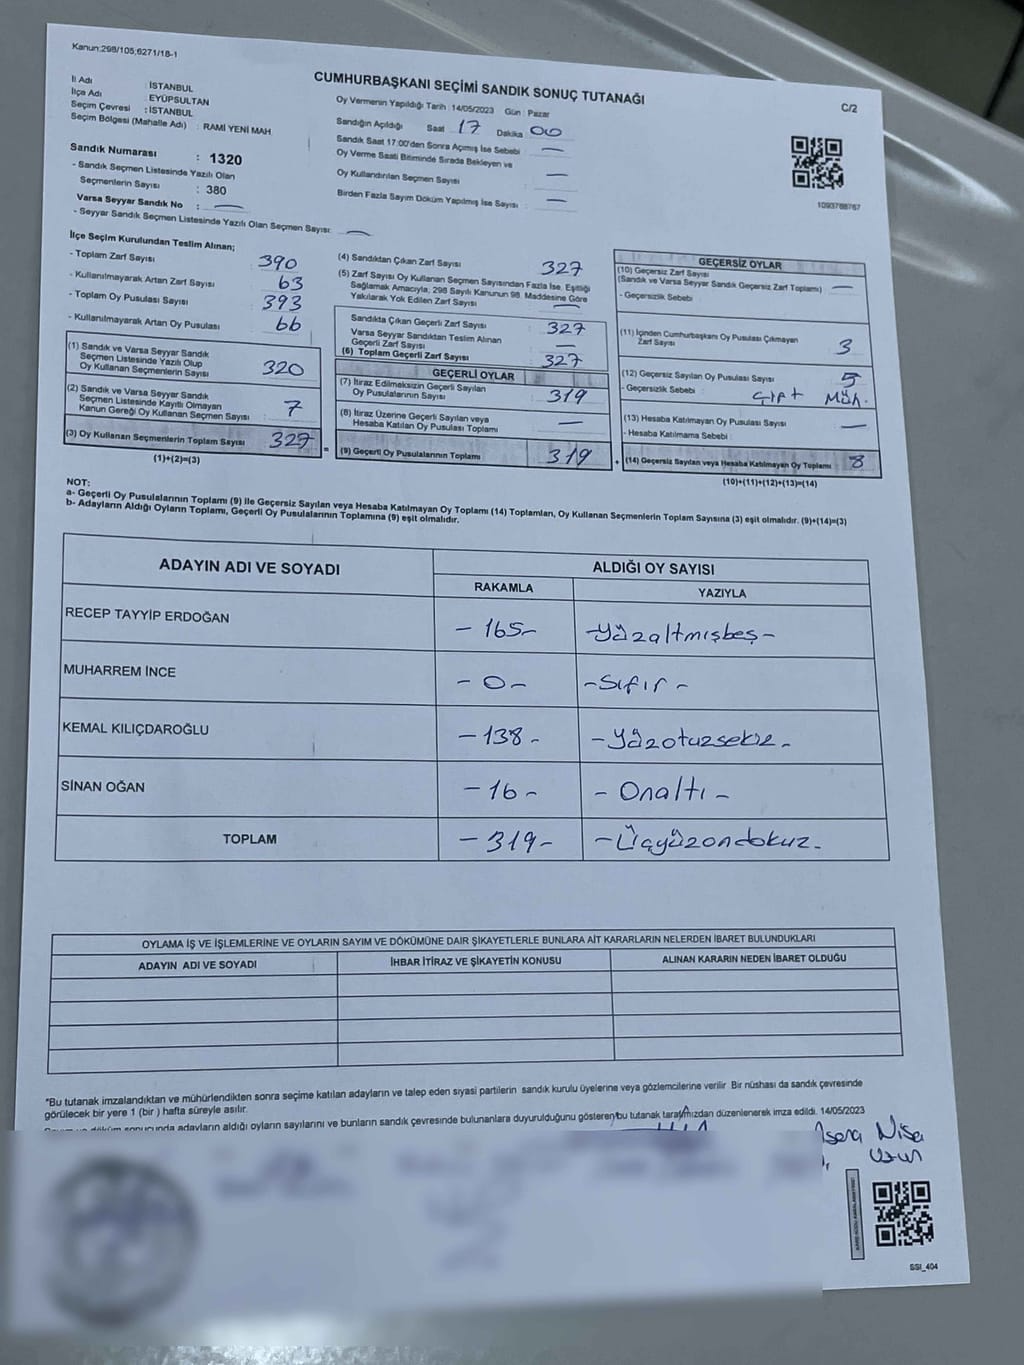 Kanun:298/105;6271/18-1
CUMHURBAŞKANI SEÇİMİ SANDIK SONUÇ TUTANAĞI
C/2
İl Adı : İSTANBUL
İlçe Adı : EYÜPSULTAN
Seçim Çevresi : İSTANBUL
Seçim Bölgesi (Mahalle Adı) : RAMİ YENİ MAH
Sandık Numarası : 1320
- Sandık Seçmen Listesinde Yazılı Olan
Seçmenlerin Sayısı : 380
Varsa Seyyar Sandık No : —
- Seyyar Sandık Seçmen Listesinde Yazılı Olan Seçmen Sayısı: —
Oy Vermenin Yapıldığı Tarih : 14/05/2023 Gün : Pazar
Sandığın Açıldığı Saat 17 Dakika 00
Sandık Saat 17:00'den Sonra Açımış İse Sebebi —
Oy Verme Saati Bitiminde Sırada Bekleyen ve
Oy Kullandırılan Seçmen Sayısı —
Birden Fazla Sayım Döküm Yapılmış İse Sayısı : —
1093788767
İlçe Seçim Kurulundan Teslim Alınan;
- Toplam Zarf Sayısı 390
- Kullanılmayarak Artan Zarf Sayısı 63
- Toplam Oy Pusulası Sayısı 393
- Kullanılmayarak Artan Oy Pusulası 66
(1) Sandık ve Varsa Seyyar Sandık
Seçmen Listesinde Yazılı Olup
Oy Kullanan Seçmenlerin Sayısı 320
(2) Sandık ve Varsa Seyyar Sandık
Seçmen Listesinde Kayıtlı Olmayan
Kanun Gereği Oy Kullanan Seçmen Sayısı 7
(3) Oy Kullanan Seçmenlerin Toplam Sayısı 327 =
(1)+(2)=(3)
(4) Sandıktan Çıkan Zarf Sayısı 327
(5) Zarf Sayısı Oy Kullanan Seçmen Sayısından Fazla İse, Eşitliği
Sağlamak Amacıyla, 298 Sayılı Kanunun 98. Maddesine Göre
Yakılarak Yok Edilen Zarf Sayısı —
Sandıkta Çıkan Geçerli Zarf Sayısı 327
Varsa Seyyar Sandıktan Teslim Alınan
Geçerli Zarf Sayısı —
(6) Toplam Geçerli Zarf Sayısı 327
GEÇERLİ OYLAR
(7) İtiraz Edilmeksizin Geçerli Sayılan
Oy Pusulalarının Sayısı 319
(8) İtiraz Üzerine Geçerli Sayılan veya
Hesaba Katılan Oy Pusulası Toplamı —
(9) Geçerli Oy Pusulalarının Toplamı 319 +
GEÇERSİZ OYLAR
(10) Geçersiz Zarf Sayısı
(Sandık ve Varsa Seyyar Sandık Geçersiz Zarf Toplamı) —
- Geçersizlik Sebebi
(11) İçinden Cumhurbaşkanı Oy Pusulası Çıkmayan
Zarf Sayısı 3
(12) Geçersiz Sayılan Oy Pusulası Sayısı 5
- Geçersizlik Sebebi : Çift Müh.
(13) Hesaba Katılmayan Oy Pusulası Sayısı —
- Hesaba Katılmama Sebebi :
(14) Geçersiz Sayılan veya Hesaba Katılmayan Oy Toplamı 8
(10)+(11)+(12)+(13)=(14)
NOT:
a- Geçerli Oy Pusulalarının Toplamı (9) ile Geçersiz Sayılan veya Hesaba Katılmayan Oy Toplamı (14) Toplamları, Oy Kullanan Seçmenlerin Toplam Sayısına (3) eşit olmalıdır. (9)+(14)=(3)
b- Adayların Aldığı Oyların Toplamı, Geçerli Oy Pusulalarının Toplamına (9) eşit olmalıdır.
ADAYIN ADI VE SOYADI ALDIĞI OY SAYISI
RAKAMLA YAZIYLA
RECEP TAYYİP ERDOĞAN - 165 - - Yüzaltmışbeş -
MUHARREM İNCE - 0 - - Sıfır -
KEMAL KILIÇDAROĞLU - 138 - - Yüzotuzsekiz -
SİNAN OĞAN - 16 - - Onaltı -
TOPLAM - 319 - - Üçyüzondokuz -
OYLAMA İŞ VE İŞLEMLERİNE VE OYLARIN SAYIM VE DÖKÜMÜNE DAİR ŞİKAYETLERLE BUNLARA AİT KARARLARIN NELERDEN İBARET BULUNDUKLARI
ADAYIN ADI VE SOYADI İHBAR İTİRAZ VE ŞİKAYETİN KONUSU ALINAN KARARIN NEDEN İBARET OLDUĞU
"Bu tutanak imzalandıktan ve mühürlendikten sonra seçime katılan adayların ve talep eden siyasi partilerin sandık kurulu üyelerine veya gözlemcilerine verilir Bir nüshası da sandık çevresinde
görülecek bir yere 1 (bir ) hafta süreyle asılır.
sonucunda adayların aldığı oyların sayılarını ve bunların sandık çevresinde bulunanlara duyurulduğunu gösteren bu tutanak tarafımızdan düzenlenerek imza edildi. 14/05/2023
Nisa
Uzun
SSI_404